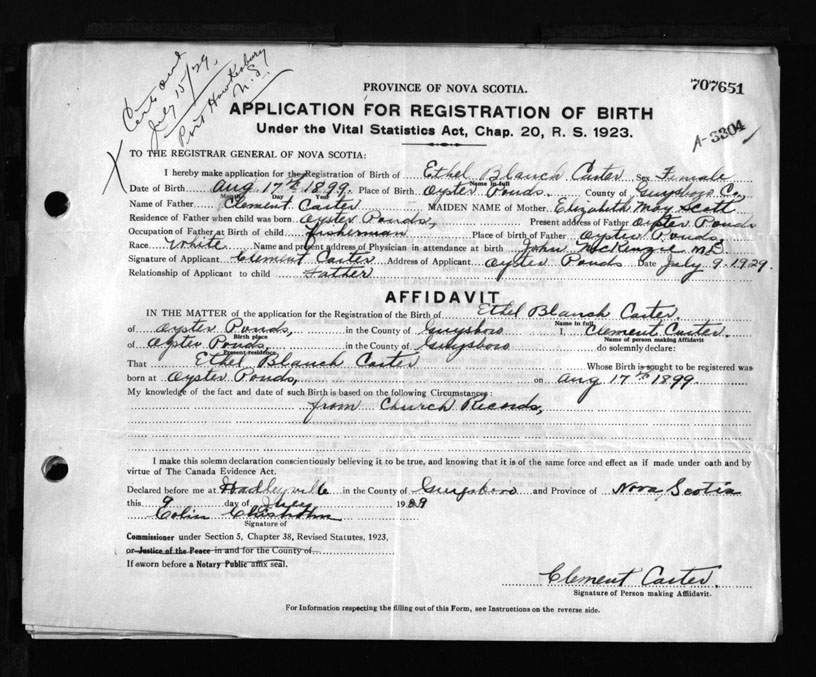 Cert out
July 15/29,
Port Hawkesbury
N.S.
707651
PROVINCE OF NOVA SCOTIA.
APPLICATION FOR REGISTRATION OF BIRTH
Under the Vital Statistics Act, Chap. 20, R. S. 1923.
A-3304
X
TO THE REGISTRAR GENERAL OF NOVA SCOTIA:
I hereby make application for the Registration of Birth of Ethel Blanch Carter Sex Female
Name in full
Date of Birth Aug 17th 1899. Place of Birth Oyster Ponds. County of Guysboro Co,
Month Day Year
Name of Father Clement Carter MAIDEN NAME of Mother Elizabeth May Scott
Residence of Father when child was born Oyster Ponds, Present address of Father Oyster Ponds
Occupation of Father at Birth of child fisherman Place of birth of Father Oyster Ponds
Race White Name and present address of Physician in attendance at birth John McKenzie M.D.
Signature of Applicant Clement Carter Address of Applicant Oyster Ponds Date July 9-1929.
Relationship of Applicant to child Father
AFFIDAVIT
IN THE MATTER of the application for the Registration of the Birth of Ethel Blansh Carter,
Name in full
of Oyster Ponds, in the County of Guysboro I, Clement Carter.
Birth place Name of person making Affidavit
of Oyster Ponds, in the County of Guysboro do solemnly declare:
Present residence,
That Ethel Blansh Carter Whose Birth is sought to be registered was
born at Oyster Ponds, on Aug 17th 1899
My knowledge of the fact and date of such Birth is based on the following Circumstances:
from Church Records,
I make this solemn declaration conscientiously believing it to be true, and knowing that it is of the same force and effect as if made under oath and by
virtue of The Canada Evidence Act.
Declared before me at Hadleyville in the County of Guysboro and Province of Nova Scotia
this 9 day of July 1929
Colin Chisholm
Signature of
Commissioner under Section 5, Chapter 38, Revised Statutes, 1923,
or Justice of the Peace in and for the County of
If sworn before a Notary Public affix seal.
Clement Carter.
Signature of Person making Affidavit.
For Information respecting the filling out of this Form, see Instructions on the reverse side.